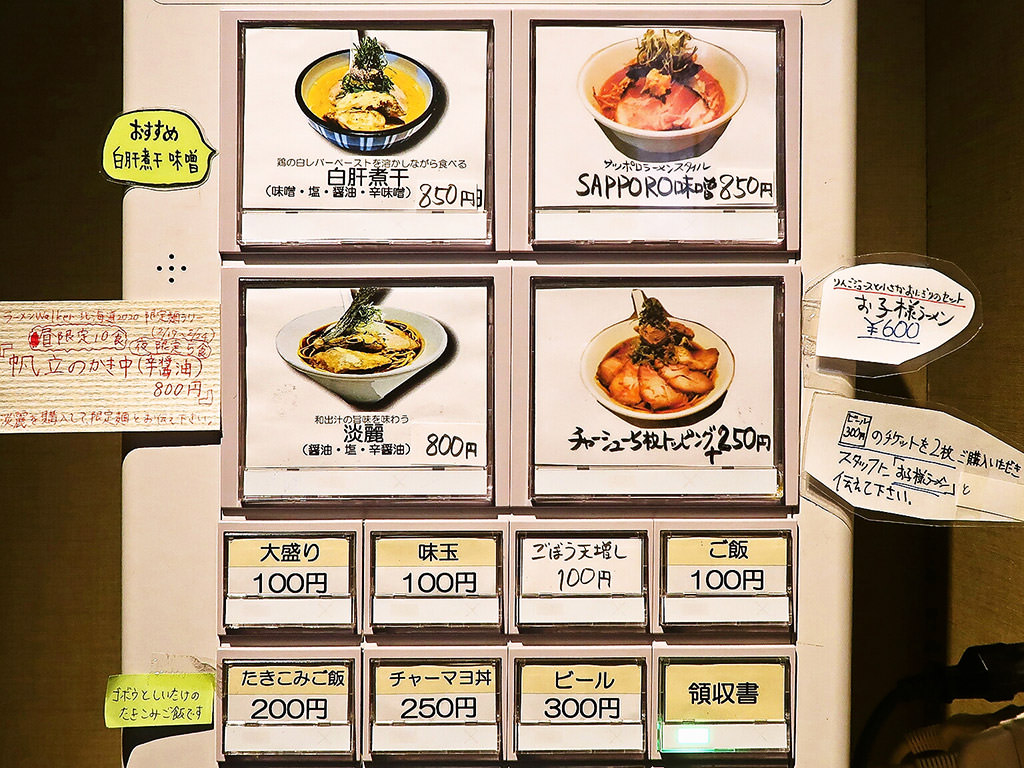 おすすめ
白肝煮干 味噌
鶏の白レバーペーストを溶かしながら食べる
白肝煮干
(味噌・塩・醤油・辛味噌) 850円
サッポロラーメンスタイル
SAPPORO味噌 850円
ラーメンWalker 北海道2020 限定麺ラリー
昼限定10食
夜限定5食
「帆立のかき中(辛醤油)
800円」
淡麗を購入して限定麺とお伝え下さい
和出汁の旨味を味わう
淡麗
(醤油・塩・辛醤油) 800円
チャーシュー5枚トッピング+250円
りんごジュースと小さなおにぎりのセット
お子様ラーメン
¥600
ビール
300円 のチケットを2枚ご購入いただき
スタッフに「お子様ラーメン」と
伝えて下さい。
大盛り
100円
味玉
100円
ごぼう天増し
100円
ご飯
100円
ゴボウとしいたけの
たきこみご飯です
たきこみご飯
200円
チャーマヨ丼
250円
ビール
300円
領収書